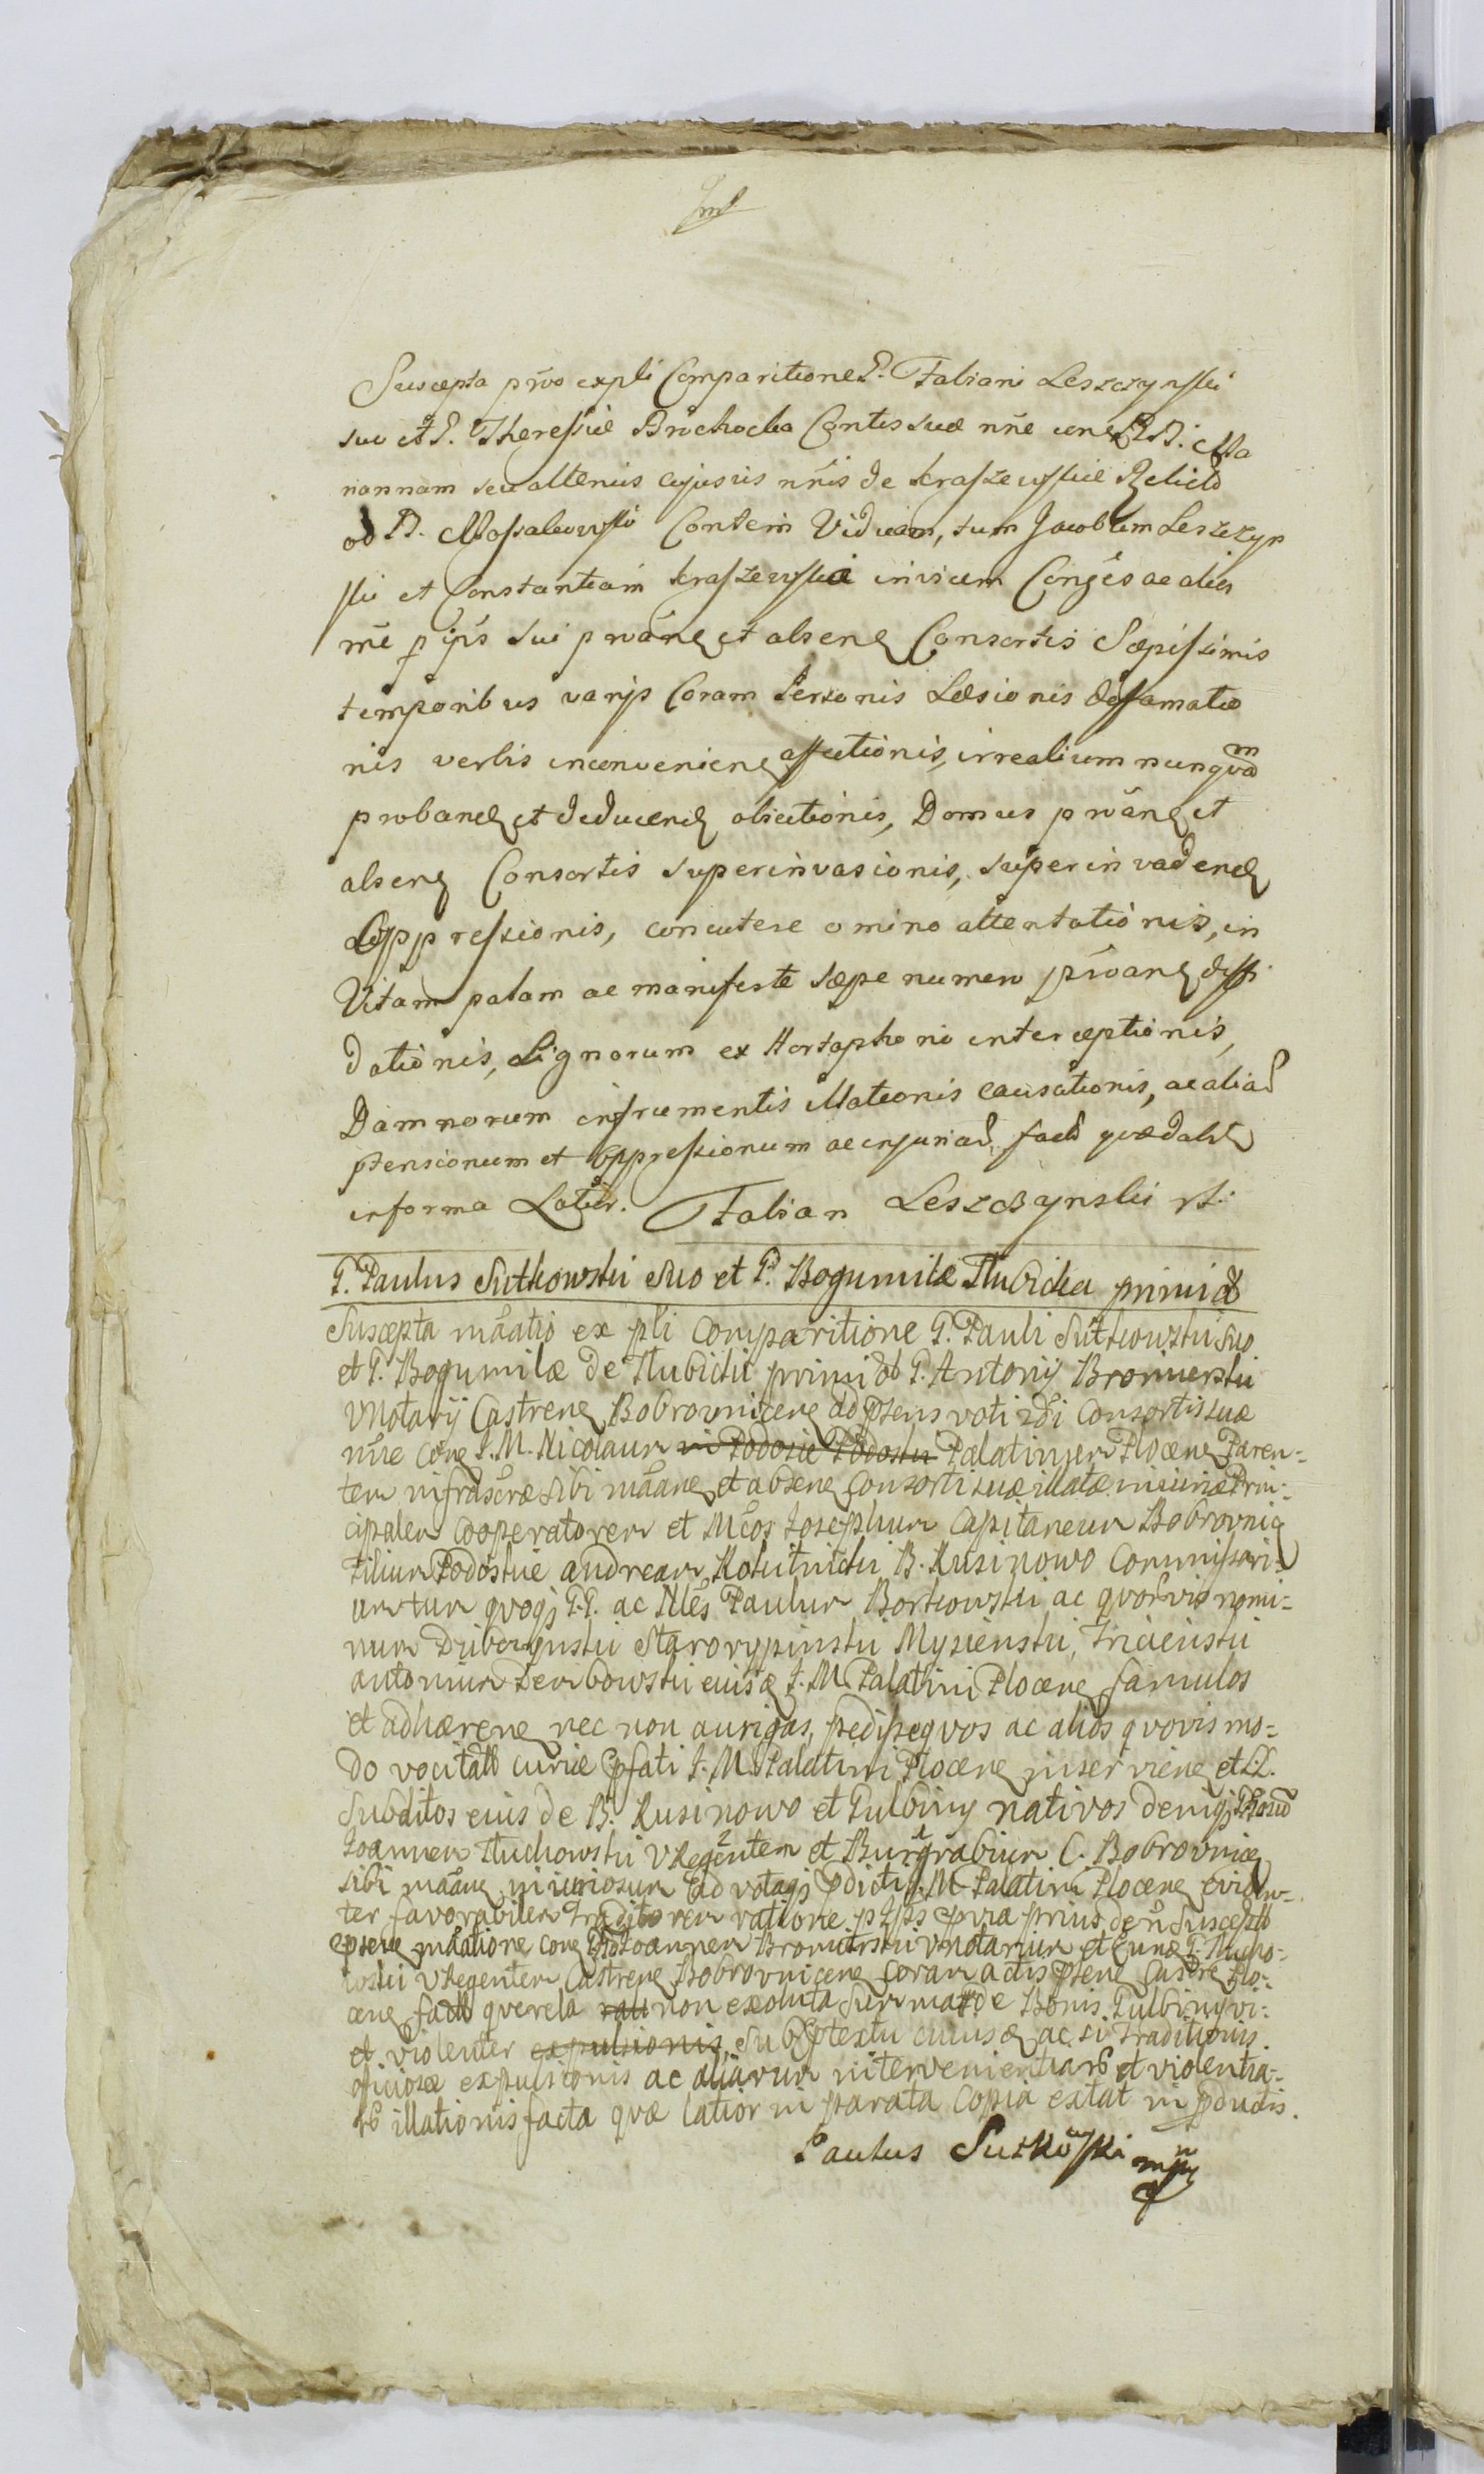 Suscepta pro expli Comparitione G. Fabiani Leszczynski
suo et G. Theressiæ Brochocka Contis suæ nne cone G. D. Ma
riannam seu alterius cujusvis nnis de Kraszewskie Relicto
od D. Mossakowski Contem Viduam, tum Jacobum Leszczyn
ski et Constantiam Kraszewska invicem Conges ac alios
rne p ipis sui proane et absene Consortis Sæpissimis
temporibus varijs Coram Personis Læsionis diffamatio
nis verbis inconveniene affectionis, irrealium nunqvam
probane et deducend obiectionis, Domus proane et
absene Consortis superinvasionis, superinvadend
Oppressionis, concutere omino attentationis, in
Vitam palam ac manifeste sæpe numero proane diffi
dationis, Lignorum ex Hortaphonio interceptionis,
Damnorum infrumentis illationis causationis, ac aliad
ptensionum et oppressionum ac injuriad facto quædabt
informa Latior. Fabian Leszczynski rt.
G. Paulus Sutkowski Suo et G. Bogumilæ Tlubicka primi
Suscepta maatio ex pti Comparitione G. Pauli Sutkowski suo
et G. Bogumilæ de Tlubicki primi ob G. Antonij Bromierski
VNotarij Castrene Bobrovnicene ad psens voti 2di Consortis suæ
nne cone I. M. Nicolaum Palatinum Plocene Paren-
tem infrascræ sibi maane et absene Consorti suæ illatæ iniuriæ Prin-
cipalem Cooperatorem et Mcos Josephum Capitaneum Bobrovnic
Filium Podoskie andream Kokitnicki B. Rusinowo Commissari-
um tum qvoqz G.G. ac Nles Paulum Borkowski ac qvosvis nomi-
num Dziberynski Starorypinski Mysienski, Tricienski
antonium Dembowski eiusd I. M. Palatini Plocene famulos
et adhærene nec non aurigas, pedissequos ac alios qvovis mo-
do vocitatt curiæ pfati I. M. Palatini Plocene inserviene et LL.
Subditos eius de B. Rusinowo et Pulbiny nativos deniqz
Joannem Tluchowski VRegentem et Burgrabium C. Bobrovnic
sibi maane iniuriosum ad votaqz pdicti I. M. Palatini Plocene eviden-
ter favorabilem Traditorem ratione ptps pvia prius den suscept
psene maatione cone Joannem Bromirski VNotarium et Tlucho-
wski VRegentem Castrene Bobrovnicene Coram actis psene Castre Plo-
cene fact querela non exoluta summa de Bonis Pulbiny vi
et violenter expulsionis, sub ptextu cuiusd ac si Traditionis
officiosæ expulsionis ac aliarum intervenientiarb et violentia-
rb illationis facta quæ latior in parata copia extat in pductis.
Paulus Sutkowski mp